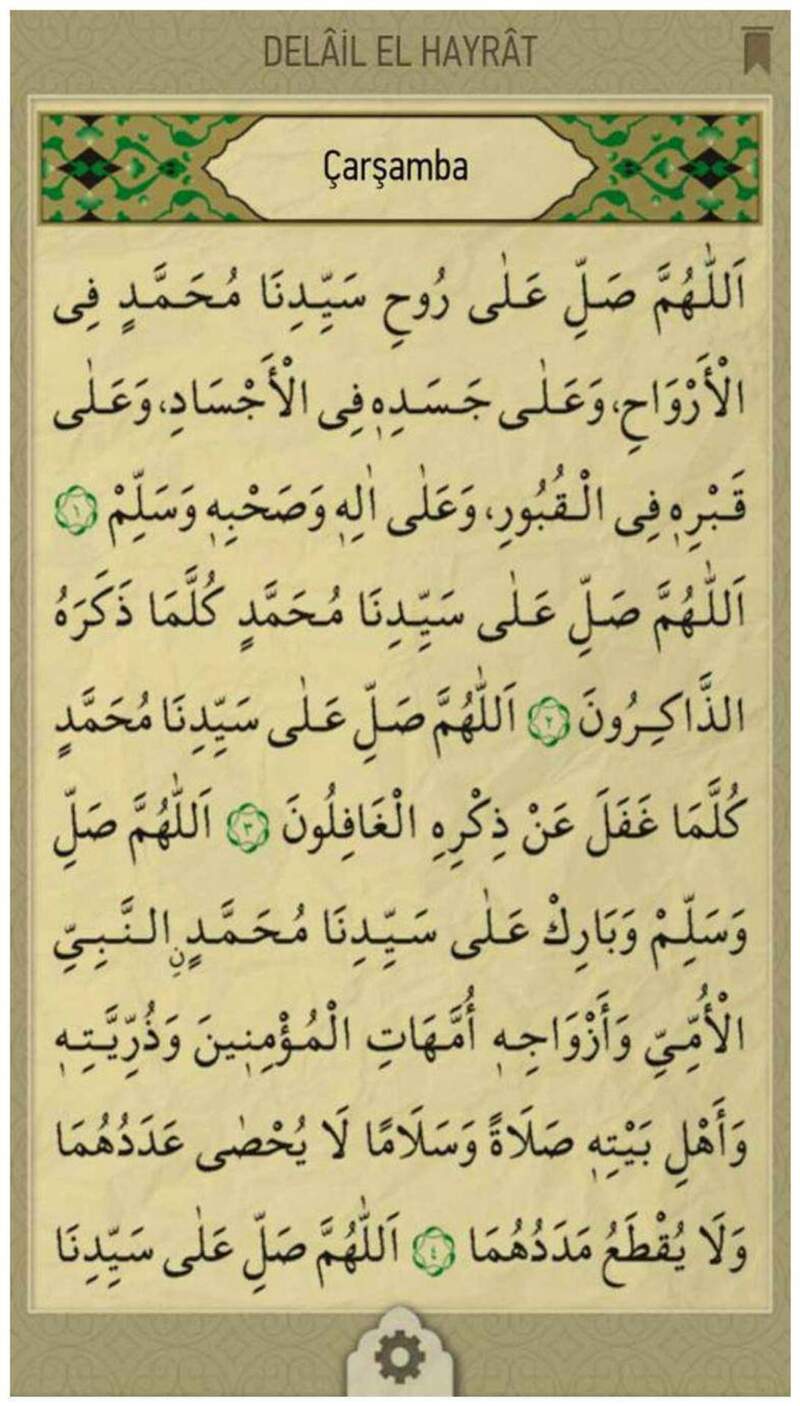 DELÂİL EL HAYRÂT
Çarşamba
اَللّٰهُمَّ صَلِّ عَلٰى رُوحِ سَيِّدِنَا مُحَمَّدٍ فِى
الْأَرْوَاحِ، وَعَلٰى جَسَدِهٖ فِى الْأَجْسَادِ، وَعَلٰى
قَبْرِهٖ فِى الْقُبُورِ، وَعَلٰى اٰلِهٖ وَصَحْبِهٖ وَسَلِّمْ ١
اَللّٰهُمَّ صَلِّ عَلٰى سَيِّدِنَا مُحَمَّدٍ كُلَّمَا ذَكَرَهُ
الذَّاكِرُونَ ٢ اَللّٰهُمَّ صَلِّ عَلٰى سَيِّدِنَا مُحَمَّدٍ
كُلَّمَا غَفَلَ عَنْ ذِكْرِهِ الْغَافِلُونَ ٣ اَللّٰهُمَّ صَلِّ
وَسَلِّمْ وَبَارِكْ عَلٰى سَيِّدِنَا مُحَمَّدٍ نِ النَّبِىِّ
الْأُمِّىِّ وَأَزْوَاجِهٖ أُمَّهَاتِ الْمُؤْمِنٖينَ وَذُرِّيَّتِهٖ
وَأَهْلِ بَيْتِهٖ صَلَاةً وَسَلَامًا لَا يُحْصٰى عَدَدُهُمَا
وَلَا يُقْطَعُ مَدَدُهُمَا ٤ اَللّٰهُمَّ صَلِّ عَلٰى سَيِّدِنَا